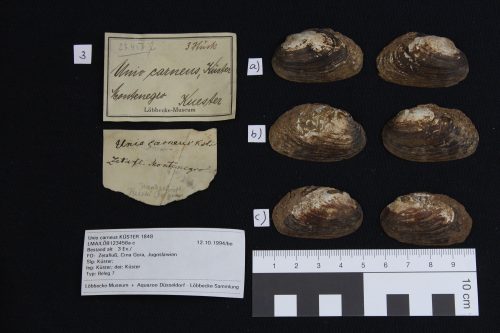 3
3 Stück
Unio carneus, Küster
Montenegro
Kuester
Löbbecke-Museum
Unio carneus Kst.
Zeta fl. Montenegro
Unio carneus KÜSTER 1848
12.10.1994/be
Bestand alt: 3 Ex./
FO: Zetafluß, Crna Gora, Jugoslawien
Slg: Küster;
leg: Küster; det: Küster
Typ: Beleg ?
Löbbecke-Museum + Aquazoo Düsseldorf - Löbbecke Sammlung
a)
b)
c)
1 2 3 4 5 6 7 8 9
10 cm